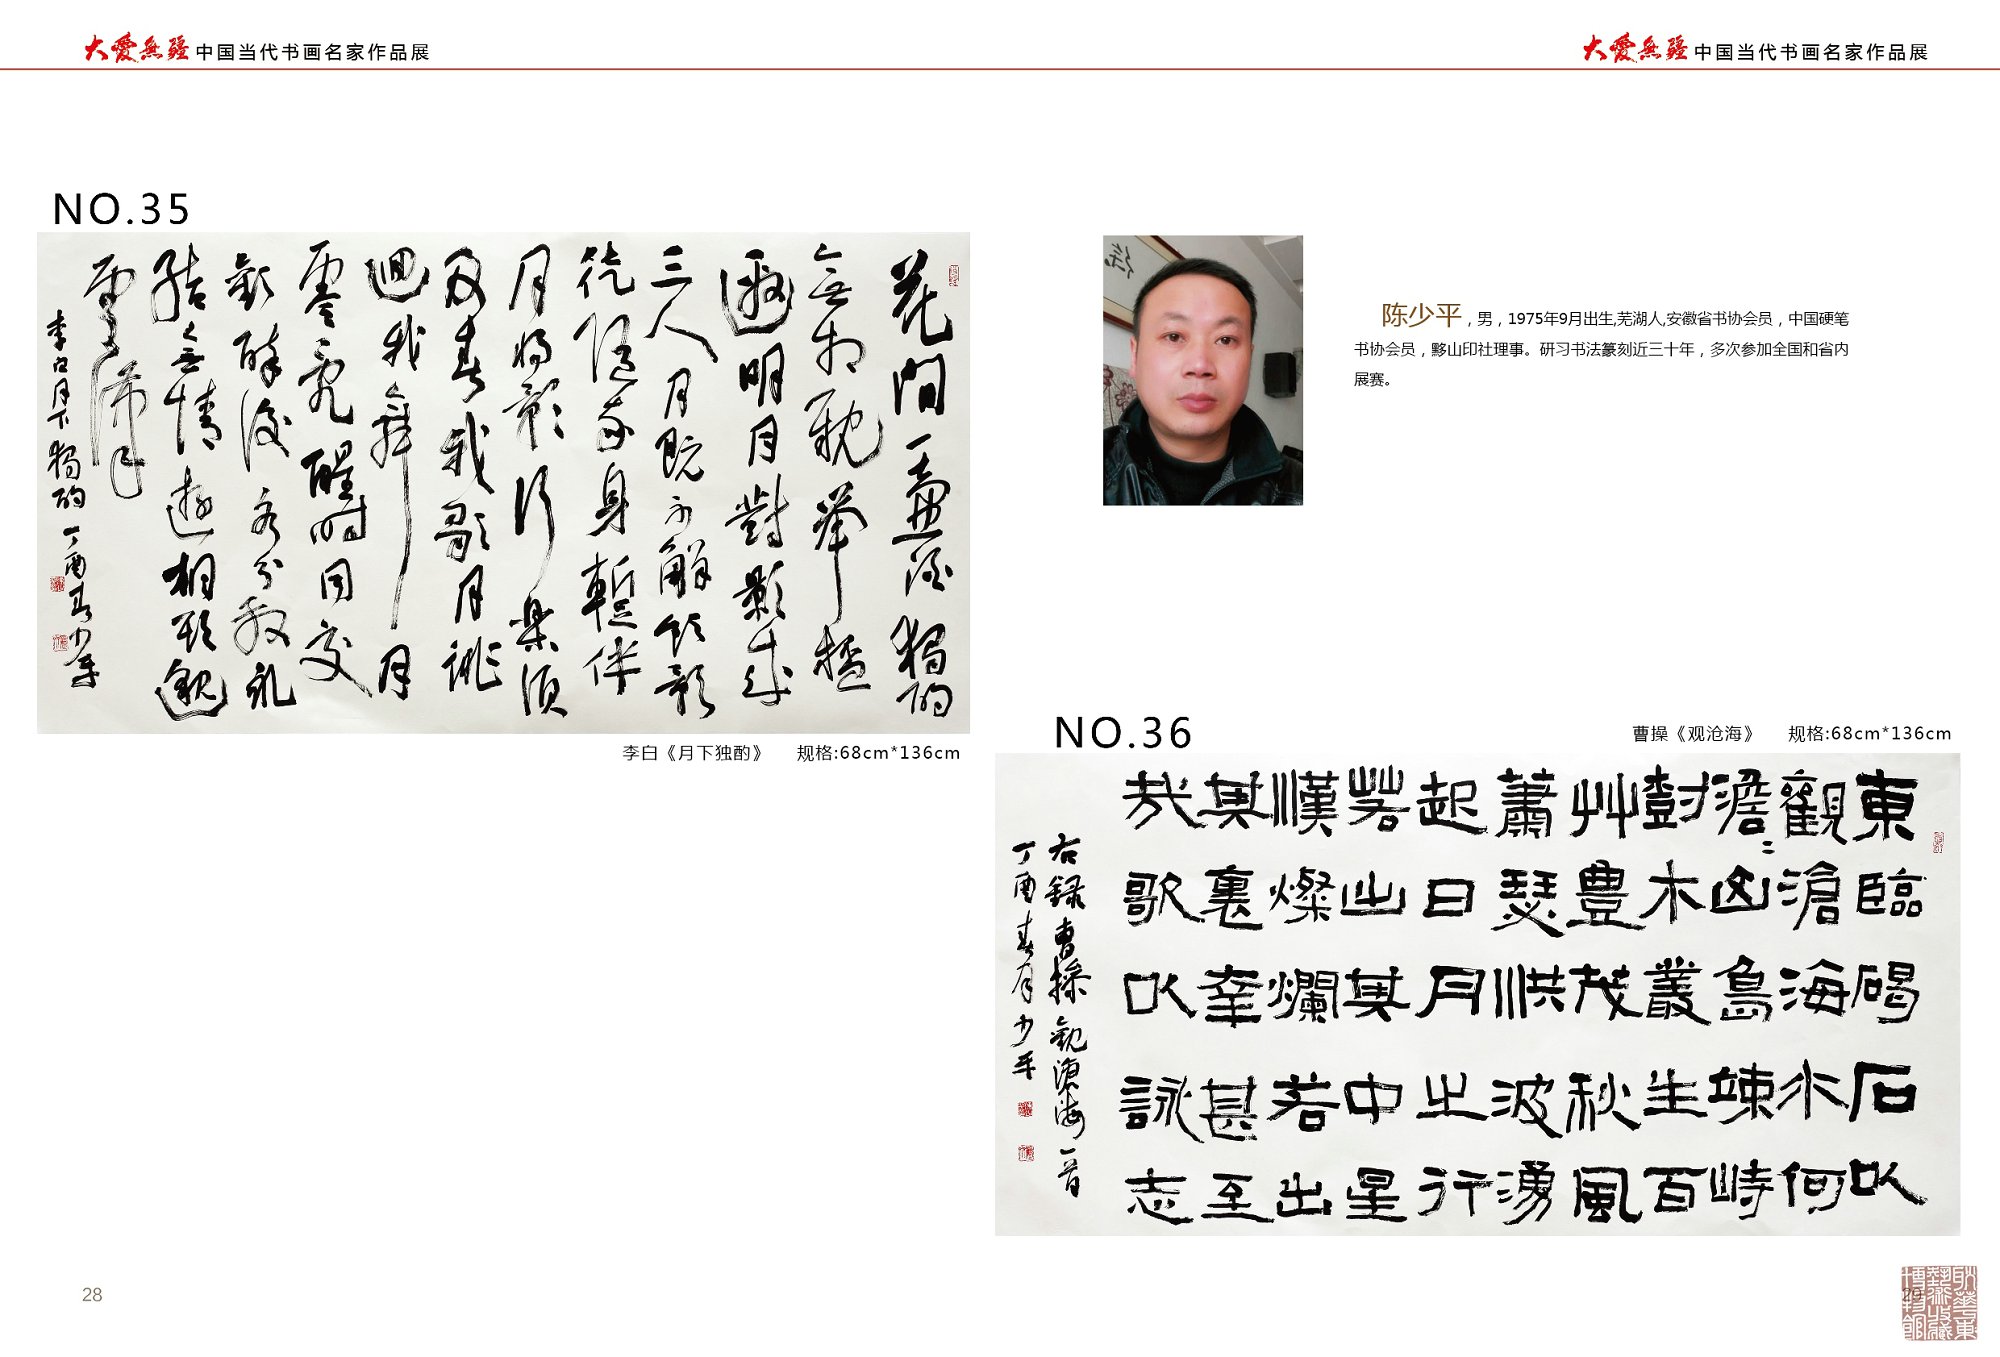 大愛無疆中国当代书画名家作品展
大愛無疆中国当代书画名家作品展
NO.35
花間一壺酒獨酌
無相親舉杯
邀明月對影成
三人月既不解飲影
徒隨我身暫伴
月將影行樂須
及春我歌月徘
迴我舞月
零亂醒時同交
歡醉後各分散永
結無情遊相期邈
雲漢
李白月下獨酌 丁酉春少平
李白《月下独酌》 规格:68cm*136cm
28
陈少平，男，1975年9月出生,芜湖人,安徽省书协会员，中国硬笔
书协会员，黟山印社理事。研习书法篆刻近三十年，多次参加全国和省内
展赛。
NO.36
曹操《观沧海》 规格:68cm*136cm
東臨碣石以
觀滄海水何
澹〻山島竦峙
樹木叢生百
艸豐茂秋風
蕭瑟洪波湧
起日月之行
若出其中星
漢燦爛若出
其裏幸甚至
哉歌以詠志
右録曹操觀滄海一首
丁酉春月少平
29
耿華東
藝術收藏
博物館